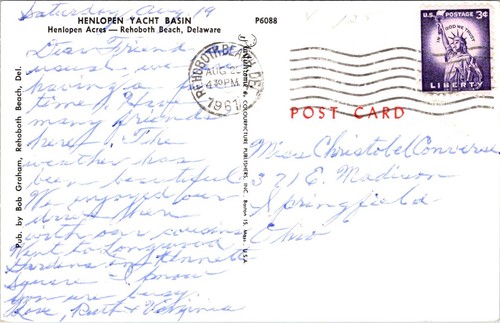 Saturday, Aug 19
HENLOPEN YACHT BASIN
Henlopen Acres — Rehoboth Beach, Delaware
P6088
Dear Friend
having a
time. Have
many friends
here. The
weather has
been beautiful
We enjoyed our
drive
with our cousins
Went to Longwood
Gardens in Kennett
Square. I know
you are busy.
Love, Ruth & Virginia
Pub. by Bob Graham, Rehoboth Beach, Del.
COLOURPICTURE PUBLISHERS, INC. Boston 15, Mass., U.S.A.
REHOBOTH BEACH, DEL.
AUG
4 30 PM
1961
U.S. POSTAGE 3¢
IN GOD WE TRUST
LIBERTY
POST CARD
Miss Christobel Converse
371 E. Madison
Springfield
Ohio